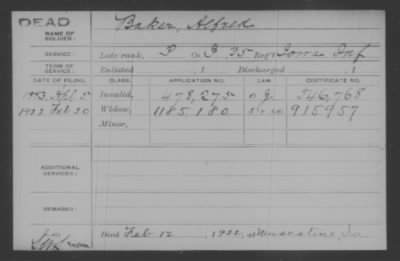 DEAD
NAME OF SOLDIER: Baker, Alfred
SERVICE: Late rank, P Co. 35 Reg't Iowa Inf
TERM OF SERVICE: Enlisted , 1 Discharged , 1
DATE OF FILING. CLASS. APPLICATION NO. LAW. CERTIFICATE NO.
Invalid, 478,275 546,768
1922 Feb 20 Widow, 1185,180 915957
Minor,
ADDITIONAL SERVICES:
REMARKS:
Died Feb 12, 1922, at Muscatine, Ia